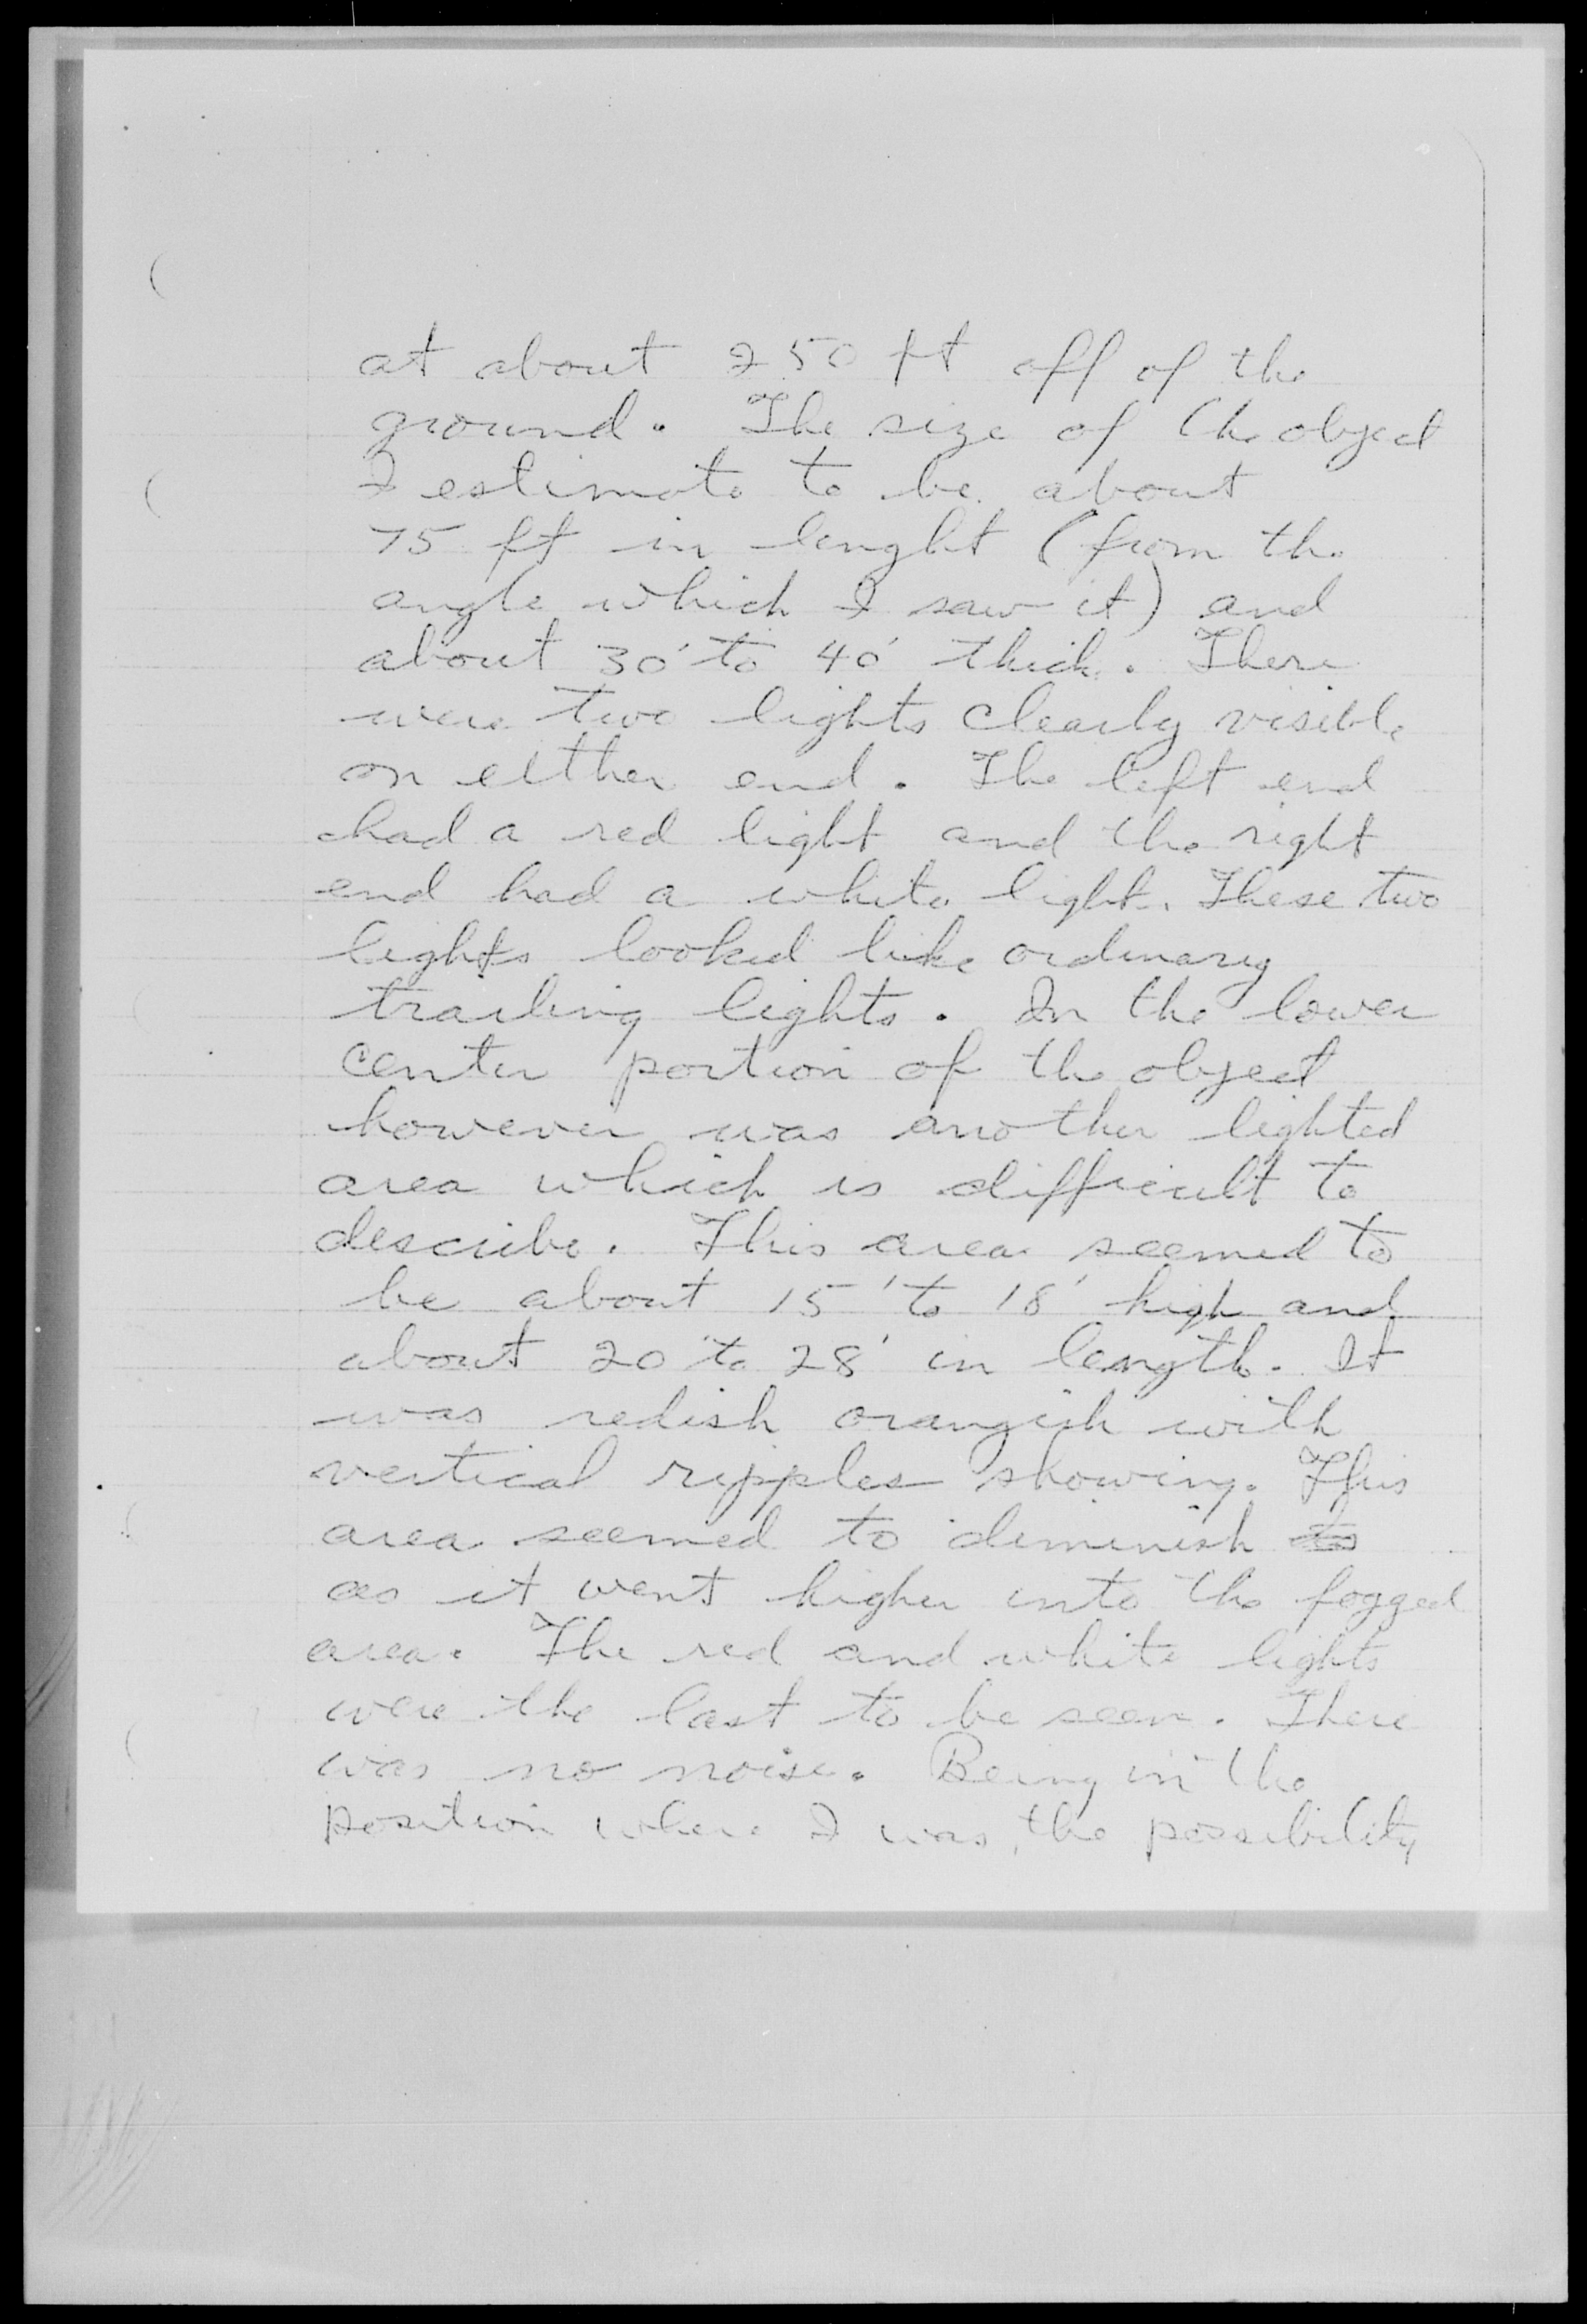 at about 250 ft off of the
ground. The size of the object
I estimate to be about
75 ft in lenght (from the
angle which I saw it) and
about 30' to 40' thick. There
were two lights clearly visible
on either end. The left end
had a red light and the right
end had a white light. These two
lights looked like ordinary
trailing lights. In the lower
center portion of the object
however was another lighted
area which is difficult to
describe. This area seemed to
be about 15' to 18' high and
about 20' to 28' in length. It
was redish orangish with
vertical ripples showing. This
area seemed to diminish to
as it went higher into the fogged
area. The red and white lights
were the last to be seen. There
was no noise. Being in the
position where I was, the possibility